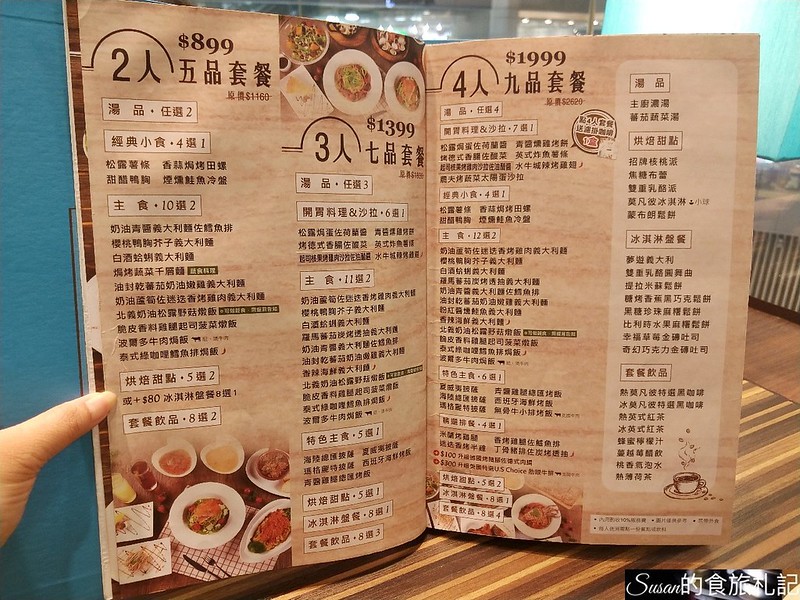 2人 五品套餐
$899
原價$1160
湯 品・任選2
經典小食・4選1
松露薯條 香蒜焗烤田螺
甜醋鴨胸 煙燻鮭魚冷盤
主 食・10選2
奶油青醬義大利麵佐鱈魚排
櫻桃鴨胸芥子義大利麵
白酒蛤蜊義大利麵
焗烤蔬菜千層麵
油封乾蕃茄奶油嫩雞義大利麵
奶油蘆筍佐迷迭香烤雞肉義大利麵
北義奶油松露野菇燉飯
脆皮香料雞腿起司菠菜燉飯
波爾多牛肉焗飯
泰式綠咖哩鱈魚排焗飯
烘焙甜點・5選2
或+$80 冰淇淋盤餐8選1
套餐飲品・8選2
3人 七品套餐
$1399
湯 品・任選3
開胃料理&沙拉・6選1
松露焗蛋佐荷蘭醬 青醬燻雞烤餅
烤德式香腸佐酸菜 英式炸魚薯條
水牛城辣烤雞翅
主 食・11選2
奶油蘆筍佐迷迭香烤雞肉義大利麵
櫻桃鴨胸芥子義大利麵
白酒蛤蜊義大利麵
羅馬蕃茄炭烤透抽義大利麵
奶油青醬義大利麵佐鱈魚排
油封乾蕃茄奶油嫩雞義大利麵
香辣海鮮義大利麵
北義奶油松露野菇燉飯
脆皮香料雞腿起司菠菜燉飯
泰式綠咖哩鱈魚排焗飯
波爾多牛肉焗飯
特色主食・5選1
海陸總匯披薩 夏威夷披薩
瑪格麗特披薩 西班牙海鮮烤飯
青醬雞腿總匯烤飯
烘焙甜點・5選1
冰淇淋盤餐・8選1
套餐飲品・8選3
4人 九品套餐
$1999
原價$2620
點4人套餐
送濾掛咖啡
1盒
湯 品・任選4
開胃料理&沙拉・7選1
松露焗蛋佐荷蘭醬 青醬燻雞烤餅
烤德式香腸佐酸菜 英式炸魚薯條
水牛城辣烤雞翅
農夫烤蔬菜太陽蛋沙拉
經典小食・4選1
松露薯條 香蒜焗烤田螺
甜醋鴨胸 煙燻鮭魚冷盤
主食・12選2
奶油蘆筍佐迷迭香烤雞肉義大利麵
櫻桃鴨胸芥子義大利麵
白酒蛤蜊義大利麵
羅馬蕃茄炭烤透抽義大利麵
奶油青醬義大利麵佐鱈魚排
油封乾蕃茄奶油嫩雞義大利麵
粉紅醬燻鮭魚義大利麵
香辣海鮮義大利麵
北義奶油松露野菇燉飯
脆皮香料雞腿起司菠菜燉飯
泰式綠咖哩鱈魚排焗飯
波爾多牛肉焗飯
特色主食・6選1
夏威夷披薩 青醬雞腿總匯烤飯
海陸總匯披薩 西班牙海鮮烤飯
瑪格麗特披薩 無骨牛小排烤飯
精選排餐・4選1
米蘭烤雞腿 香烤雞腿佐鱸魚排
迷迭香烤半雞 丁骨豬排佐炭烤透抽
烘焙甜點・5選2
冰淇淋盤餐・8選1
套餐飲品・8選4
湯 品
主廚濃湯
蕃茄蔬菜湯
烘焙甜點
招牌核桃派
焦糖布蕾
雙重乳酪派
莫凡彼冰淇淋 小球
蒙布朗鬆餅
冰淇淋盤餐
夢遊義大利
雙重乳酪圓舞曲
提拉米蘇鬆餅
糖烤香蕉黑巧克鬆餅
黑糖珍珠麻糬鬆餅
比利時水果麻糬鬆餅
幸福草莓金磚吐司
奇幻巧克力金磚吐司
套餐飲品
熱莫凡彼特選黑咖啡
冰莫凡彼特選黑咖啡
熱英式紅茶
冰英式紅茶
蜂蜜檸檬汁
蔓越莓醋飲
桃香氣泡水
熱薄荷茶
Susan的食旅札記